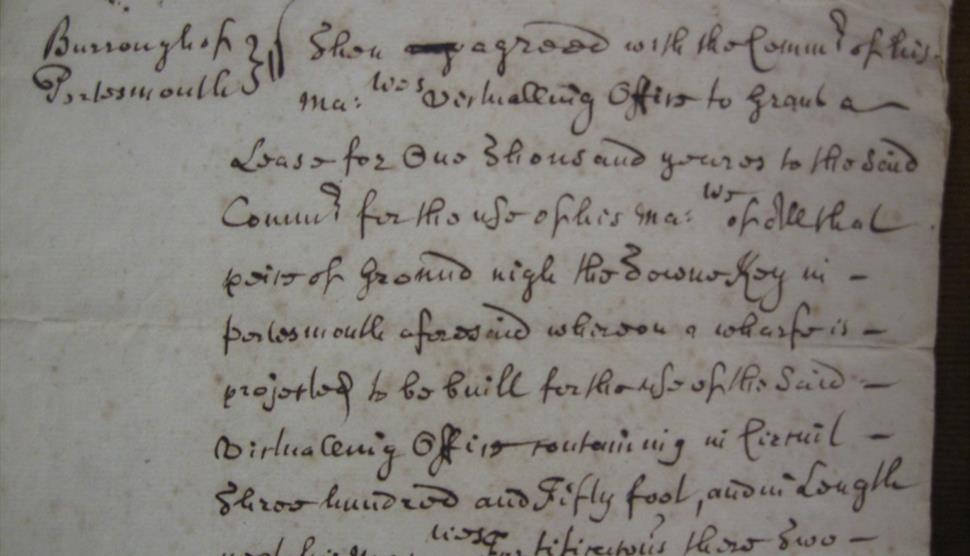 Burrough of
Portesmouth
Then agreed with the Comm.rs of his
Ma:ties Victualling Office to Grant a
Lease for One Thousand yeares to the Said
Comm.rs for the use of his Ma:tie of All that
peice of Ground nigh the Towne Key in
portesmouth aforesaid whereon a wharfe is
projected to be built for the use of the Said
Victualling Office containing in Circuit
Three hundred and Fifty foot, and in Length
there Two